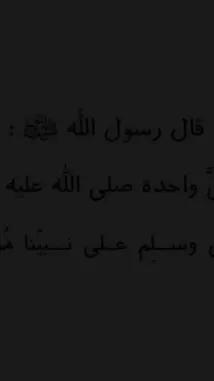 قال رسول الله ﷺ :
واحدة صلى الله عليه
وسلم على نبينا